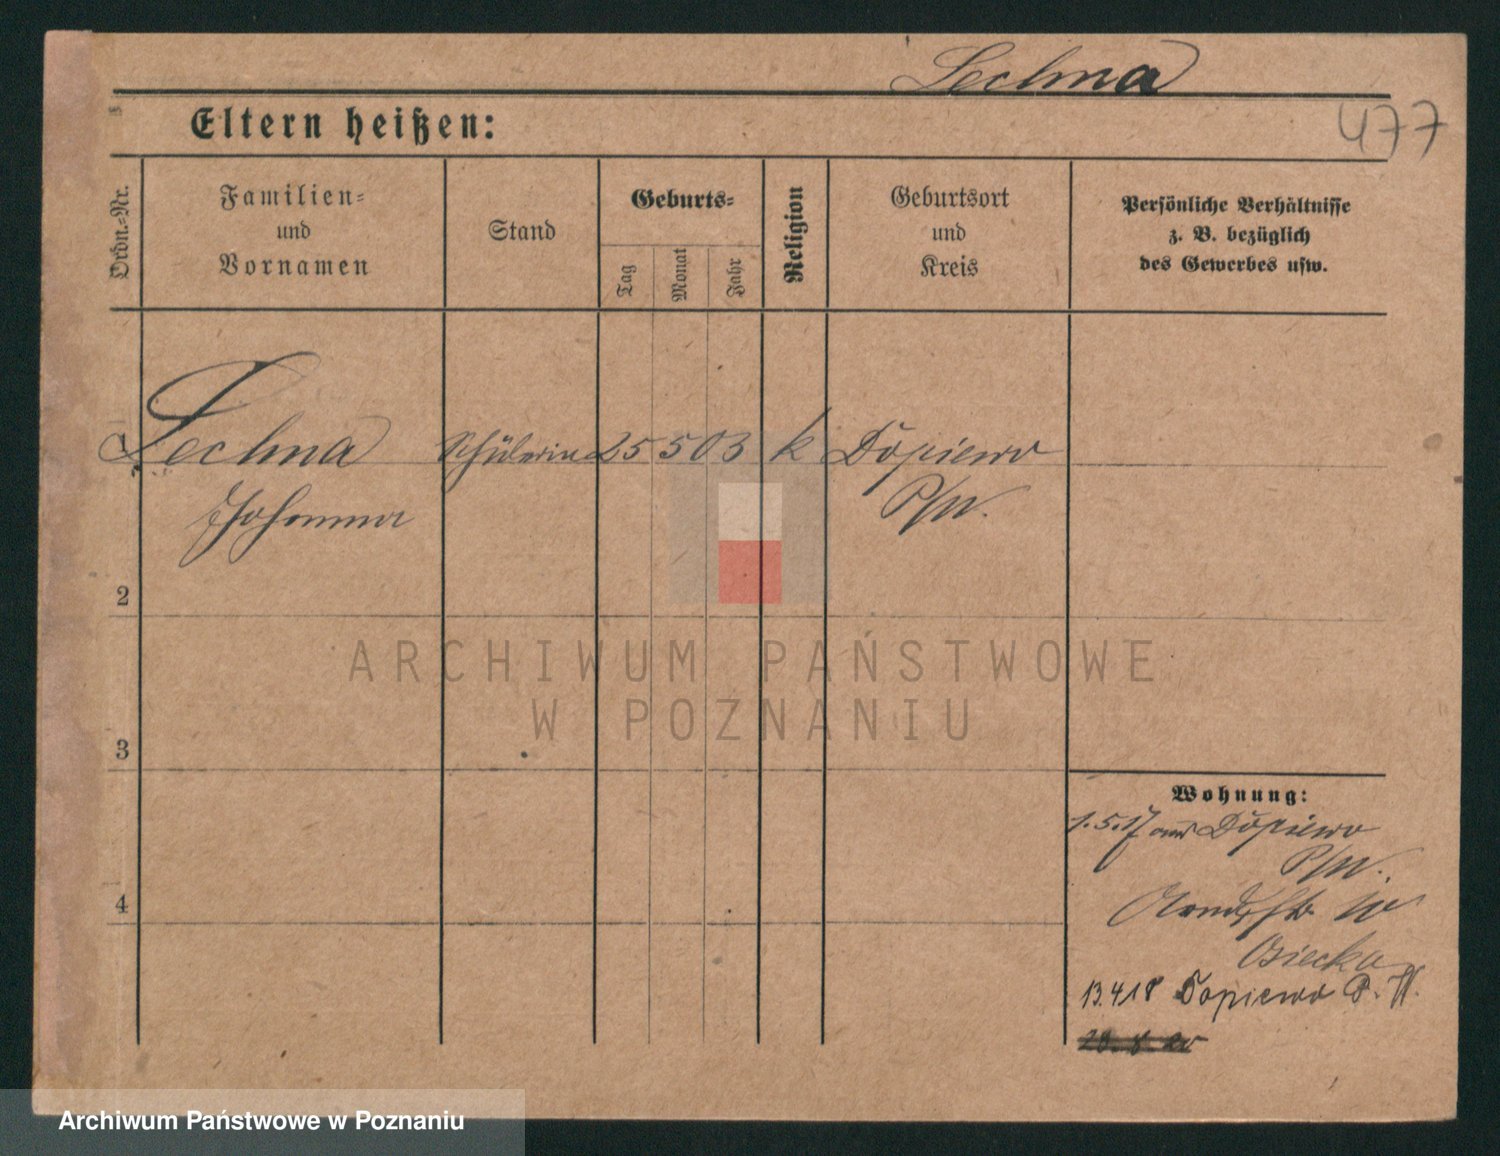 Lechna
477
Eltern heißen:
Ordn.-Nr.
Familien-
und
Vornamen
Stand
Geburts-
Tag
Monat
Jahr
Religion
Geburtsort
und
Kreis
Persönliche Verhältnisse
z. B. bezüglich
des Gewerbes usw.
1 Lechna Schülerin 25 5 03 k Dopiewo
Johanna P/W.
2
3
4
Wohnung:
1.5.17 aus Dopiewo
P/W.
Osiecka
13.4.18 Dopiewo P. W.
ARCHIWUM PAŃSTWOWE
W POZNANIU
Archiwum Państwowe w Poznaniu